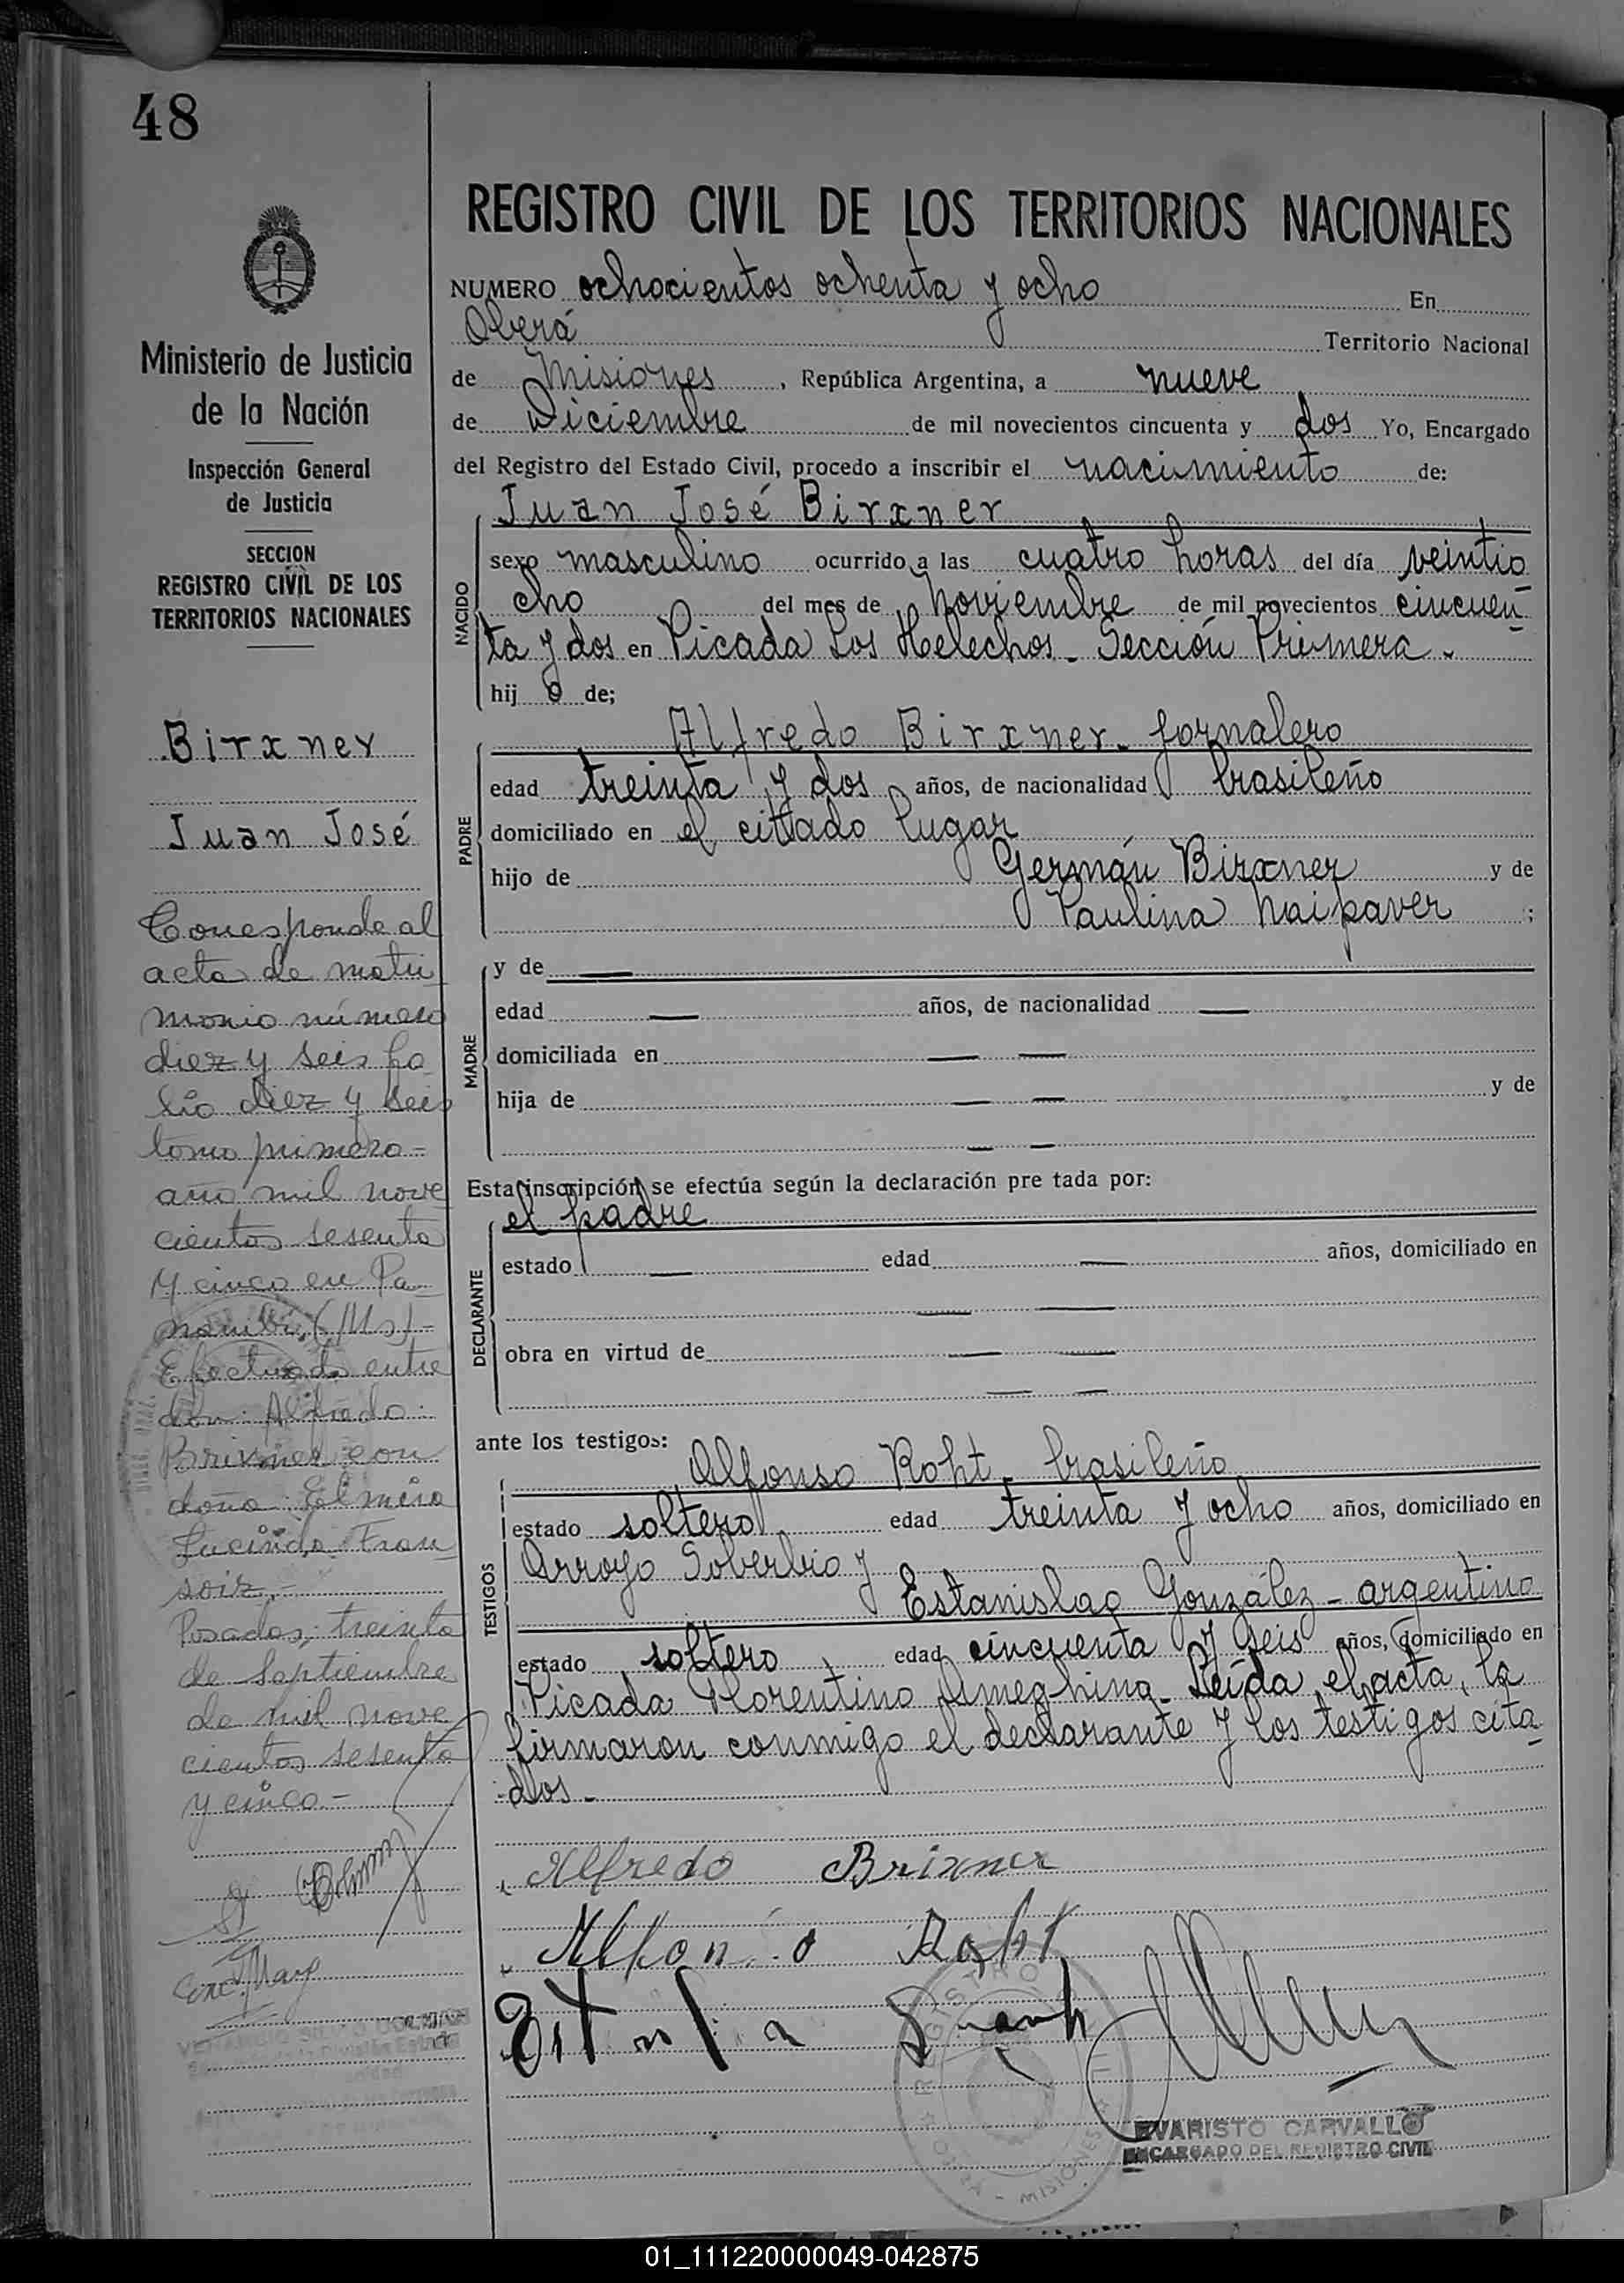 48
REGISTRO CIVIL DE LOS TERRITORIOS NACIONALES
Ministerio de Justicia
de la Nación
Inspección General
de Justicia
SECCION
REGISTRO CIVIL DE LOS
TERRITORIOS NACIONALES
Birxner
Juan José
Corresponde al
acta de matri
monio número
diez y seis fo
lio diez y seis
tomo primero-
año mil nove
cientos sesenta
y cinco en Pa-
nambí, (Ms)-
Efectuado entre
don: Alfredo:
Brixner con
doña: Elmira
Lucinda Fran
soiz.-
Posadas, treinta
de Septiembre
de mil nove
cientos sesenta
y cinco.-
NUMERO ochocientos ochenta y ocho En
Oberá Territorio Nacional
de Misiones, República Argentina, a nueve
de Diciembre de mil novecientos cincuenta y dos Yo, Encargado
del Registro del Estado Civil, procedo a inscribir el nacimiento de:
Juan José Birxner
NACIDO
sexo masculino ocurrido a las cuatro horas del día veintio
cho del mes de Noviembre de mil novecientos cincuen-
ta y dos en Picada Los Helechos - Sección Primera -
hij o de;
Alfredo Birxner - jornalero
PADRE
edad treinta y dos años, de nacionalidad brasileño
domiciliado en el cittado lugar
hijo de Germán Birxner y de
Paulina Naipaver ;
MADRE
y de —
edad — años, de nacionalidad —
domiciliada en — —
hija de — — y de
— —
Esta inscripción se efectúa según la declaración pre tada por:
el padre
DECLARANTE
estado — edad — años, domiciliado en
— —
obra en virtud de — —
— —
ante los testigos:
Alfonso Roht - brasileño
TESTIGOS
estado soltero edad treinta y ocho años, domiciliado en
Arroyo Soberbio y
Estanislao González - argentino
estado soltero edad cincuenta y seis años, domiciliado en
Picada Florentino Ameghino - Leída el acta, la
firmaron conmigo el declarante y los testigos cita-
dos -
Alfredo Brixner
REGISTRO CIVIL
MISIONES
EVARISTO CARVALLO
ENCARGADO DEL REGISTRO CIVIL
01_111220000049-042875